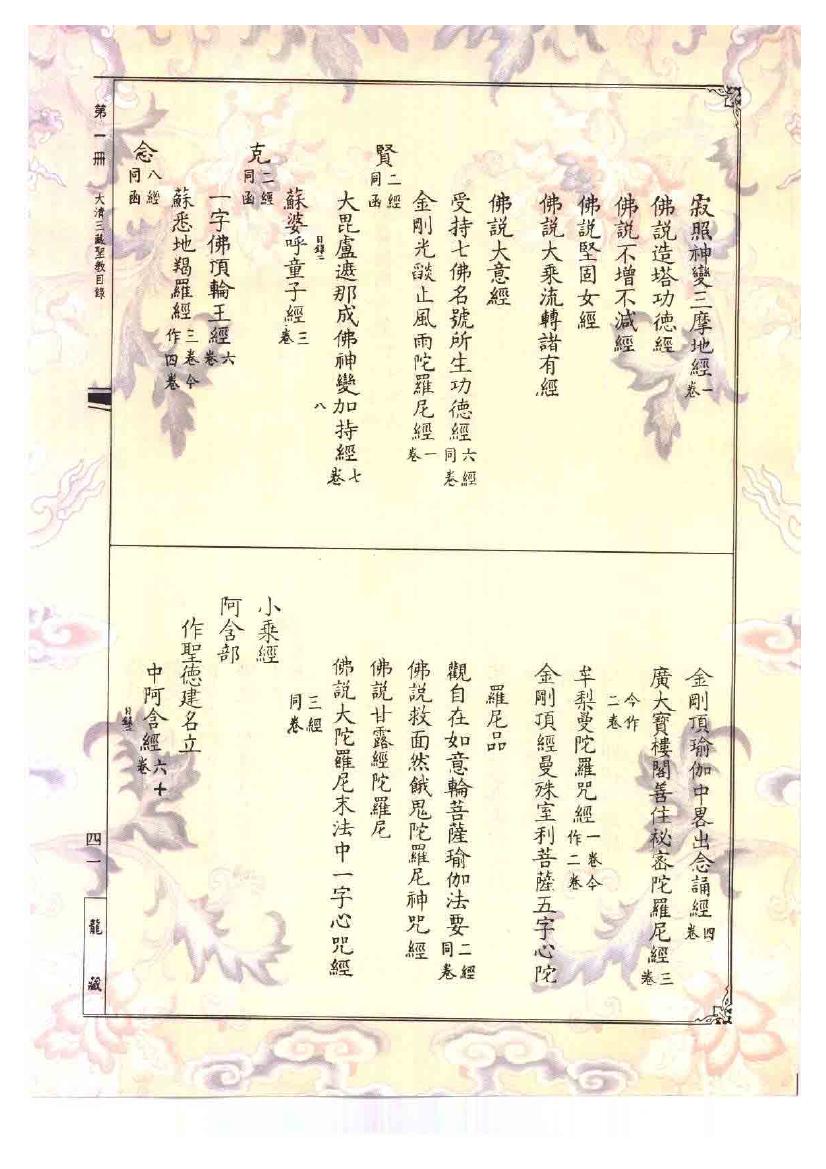 寂照神變三摩地經一卷
佛說造塔功德經
佛說不增不減經
佛說堅固女經
佛說大乘流轉諸有經
佛說大意經
受持七佛名號所生功德經六經同卷
金剛光𦦨止風雨陀羅尼經一卷
賢二經同函
大毘盧遮那成佛神變加持經七卷
目錄二
八
蘇婆呼童子經三卷
克二經同函
一字佛頂輪王經六卷
蘇悉地羯羅經三卷今作四卷
念八經同函
金剛頂瑜伽中畧出念誦經四卷
廣大寶樓閣善住祕密陀羅尼經三卷
今作二卷
牟梨曼陀羅咒經一卷今作二卷
金剛頂經曼殊室利菩薩五字心陀
羅尼品
觀自在如意輪菩薩瑜伽法要二經同卷
佛說救面然餓鬼陀羅尼神咒經
佛說甘露經陀羅尼
佛說大陀羅尼末法中一字心咒經
三經同卷
小乘經
阿含部
作聖德建名立
中阿含經六十卷
第一冊 大清三藏聖教目錄
四一
龍藏